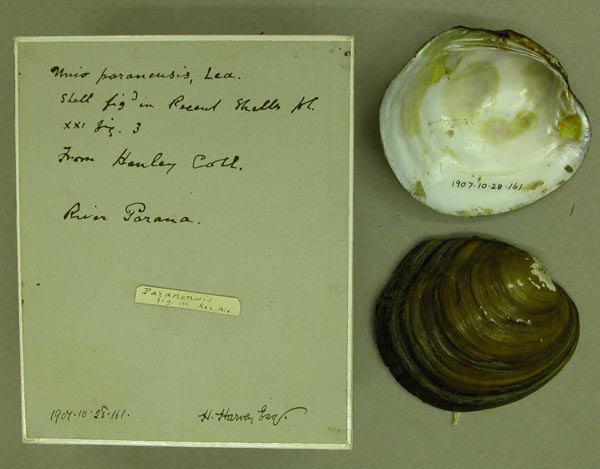 Unio paranensis, Lea.
Shell fig^d in Recent Shells pl.
xxi fig. 3
From Hanley Coll.
River Parana.
Paranensis
fig. in Rec. Biv
1907·10·28·161.
H. Harvey Esq.
1907·10·28·161